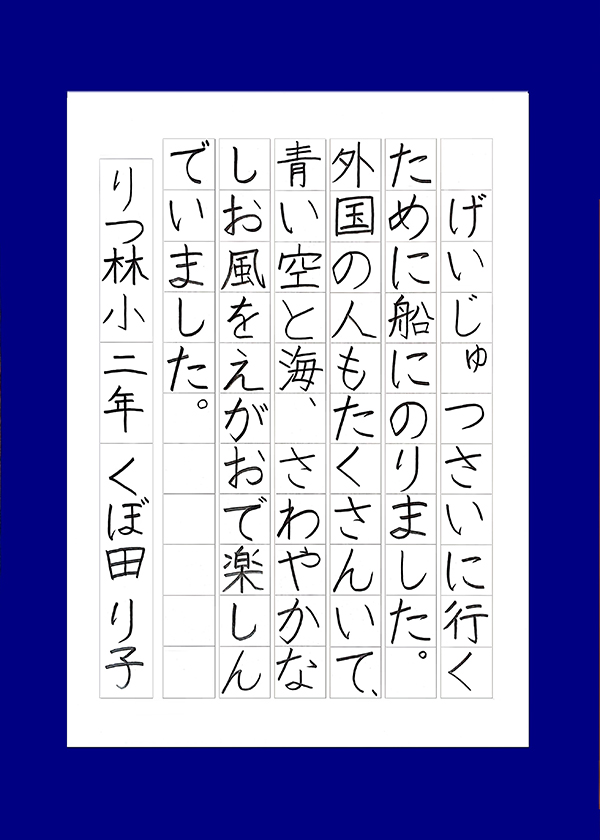 げいじゅつさいに行く
ために船にのりました。
外国の人もたくさんいて、
青い空と海、さわやかな
しお風をえがおで楽しん
でいました。
りつ林小 二年 くぼ田 り子